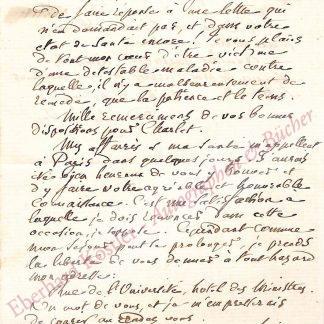 de faire réponse à une lettre qui
n'en demandait pas et dans votre
état de santé encore! Je vous plains
de tout mon cœur d'être victime
d'une détestable maladie contre
laquelle, il n'y a malheureusement de
remède, que la patience et le tems.
Mille remerciments de vos bonnes
dispositions pour Charlot.
Mes affaires et ma santé m'appellent
à Paris dans quelques jours. J'aurais
été bien heureux de vous y trouver et
d'y faire votre agréable et honorable
connaissance. C'est une satisfaction à
laquelle je dois renoncer dans cette
occasion, je
Cependant comme
mon séjour peut se prolonger, je prends
la liberté de vous donner à tout hasard
mon adresse:
rue de l'Université, hôtel des Ministres
Un mot de vous, et je m'empresserais
de
rendez vous
Eberhard Köstler Autographen & Bücher